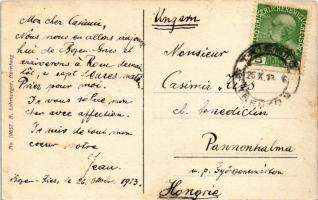 Mon cher Casimir,
Nous nous en allons aujourd'
hui de Bozen-Gries et
arriverons à Rome demain
tôt, à sept heures
Priez pour moi.
Je vous salue mon
cher avec affection.
Je suis de tout mon
coeur votre
Jean.
Bozen-Gries, le 26. 1913.
No 10657 B. Lehrburger, Nürnberg
Ungarn
Monsieur
Casimir
bénédictin
Pannonhalma
u. p. Győrszentmárton
Hongrie